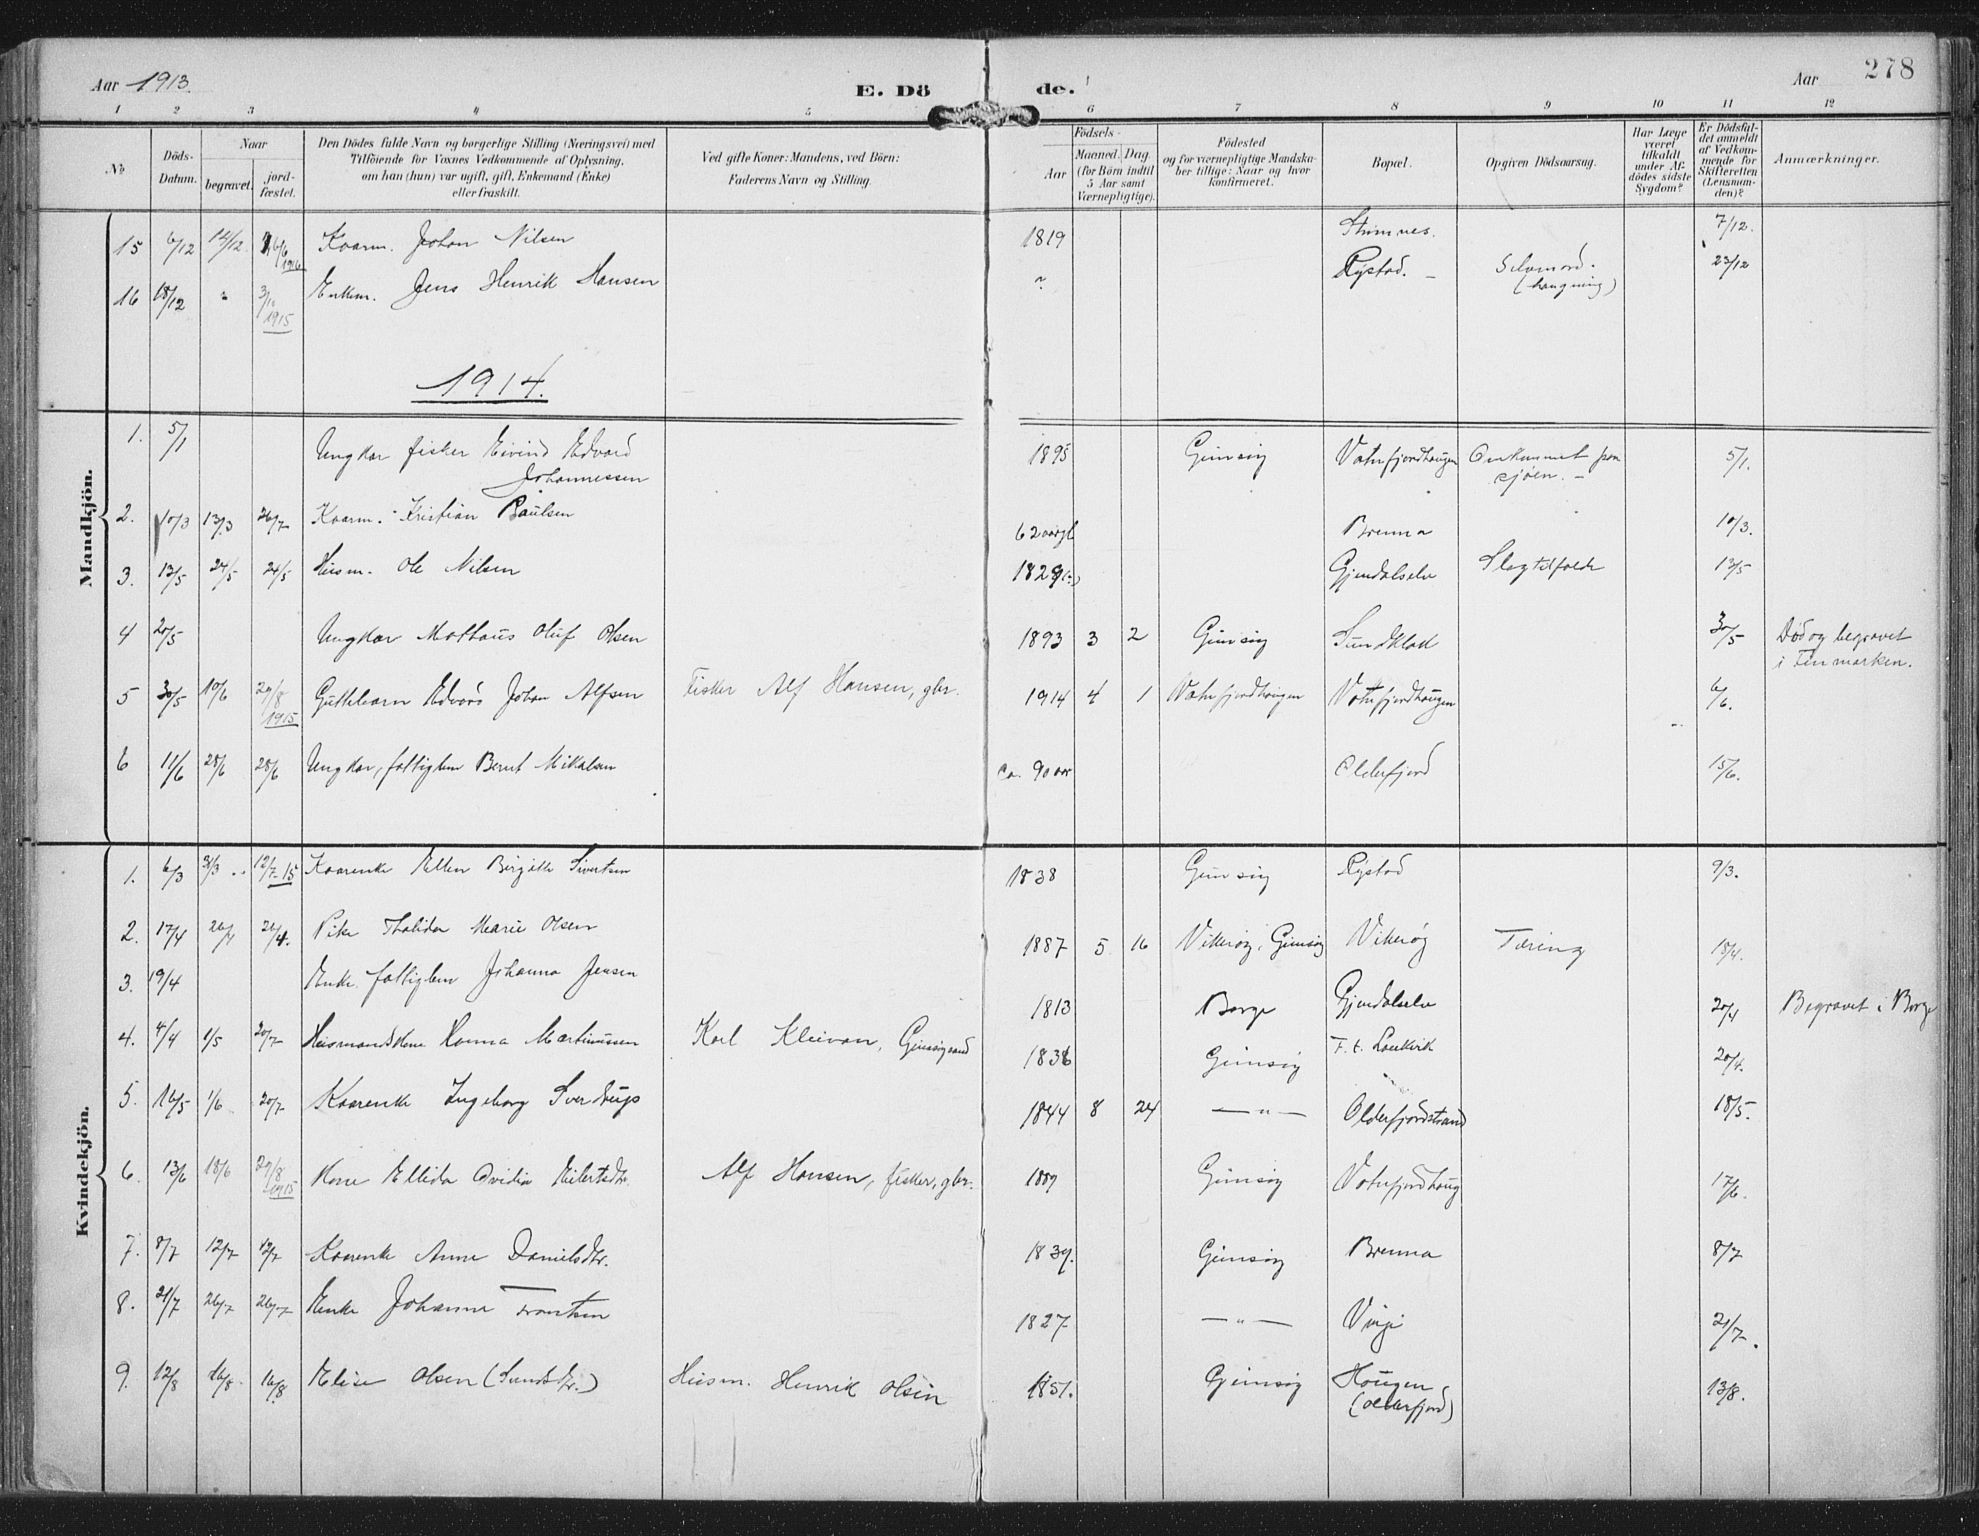 Aar 1913.
E. Dö
de.
Aar
278
1 2 3 4 5 6 7 8 9 10 11 12
No
Döds-
Datum.
Naar
begravet.
jord-
fæstet.
Den Dödes fulde Navn og borgerlige Stilling (Næringsvei) med
Tilföiende for Voxnes Vedkommende af Oplysning,
om han (hun) var ugift, gift, Enkemand (Enke)
eller fraskilt.
Ved gifte Koner: Mandens, ved Börn:
Faderens Navn og Stilling.
Födsels-
Aar
Maaned. Dag.
(for Börn indtil
5 Aar samt
Værnepligtige).
Födested
og for værnepligtige Mandska-
ber tillige: Naar og hvor
konfirmeret.
Bopæl.
Opgiven Dödsaarsag.
Har Læge
været
tilkaldt
under Af-
dödes sidste
Sygdom?
Er Dödsfal-
det anmeldt
af Vedkom-
mende for
Skifteretten
(Lensman-
den)?
Anmærkninger.
15 6/12 14/12 6/6 1916 Kaarm. Johan Nilsen 1819 Strømnes. 7/12.
16 18/12 " 3/10 1915 Enkem. Jens Henrik Hansen " Rystad. – Selvmord. (hængning) 23/12
1914.
Mandkjön.
1. 5/1 Ungkar fisker Eivind Edvard
Johannessen 1895 Gimsøy Vatnfjordhaugen Omkommet paa
sjøen. – 5/1.
2. 10/3 13/3 26/7 Kaarm. Kristian Paulsen 62 aar gl. Brenna 10/3.
3. 13/5 24/5 24/5 Husm. Ole Nilsen 1829 Gjendalselv Slagtilfælde 13/5
4 20/5 Ungkar Mathæus Oluf Olsen 1893 3 2 Gimsøy Sundklak 30/5 Död og begravet
i Finmarken.
5 30/5 10/6 29/8 1915 Guttebarn Edvard Johan Alfsen Fisker Alf Hansen, gbr. 1914 4 1 Vatnfjordhaugen Vatnfjordhaugen 6/6.
6 11/6 28/6 28/6 Ungkar, fattiglem Bernt Mikalsen ca. 90 aar Olderfjord 15/6.
Kvindekjön.
1. 6/3 31/3 12/7-15 Kaarenke Ellen Birgitte Sivertsen 1838 Gimsøy Rystad 9/3.
2. 17/4 26/4 26/4. Pike Thalida Marie Olsen 1887 5 16 Vikerøy, Gimsøy Vikerøy Tæring 18/4.
3. 19/4 Enke fattiglem Johanna Jensen 1813 Borge Gjendalselv 20/4 Begravet i Borge
4. 4/4 1/5 20/7 Husmandskone Hanna Martinussen Karl Kleivan, Gimsøysand 1836 Gimsøy F. t. Laukvik 20/4.
5. 16/5 1/6 20/7 Kaarenke Ingeborg Sverdrup 1844 8 24 — " — Olderfjordstrand 18/5.
6. 13/6 18/6 29/8 1915 Kone Ellida Ovidia Eilertsdtr. Alf Hansen, fisker, gbr. 1889 Gimsøy Vatnfjordhaug 17/6.
7. 8/7 12/7 12/7 Kaarenke Anne Danielsdtr. 1839. Gimsøy Brenna 8/7
8. 21/7 26/7 26/7 Enke Johanne Frantsen 1827 — " — Vinje 21/7.
9. 12/8 16/8 16/8 Elise Olsen (Sundsdtr.) Husm. Henrik Olsen 1851. Gimsøy Haugen
(Olderfjord) 13/8.